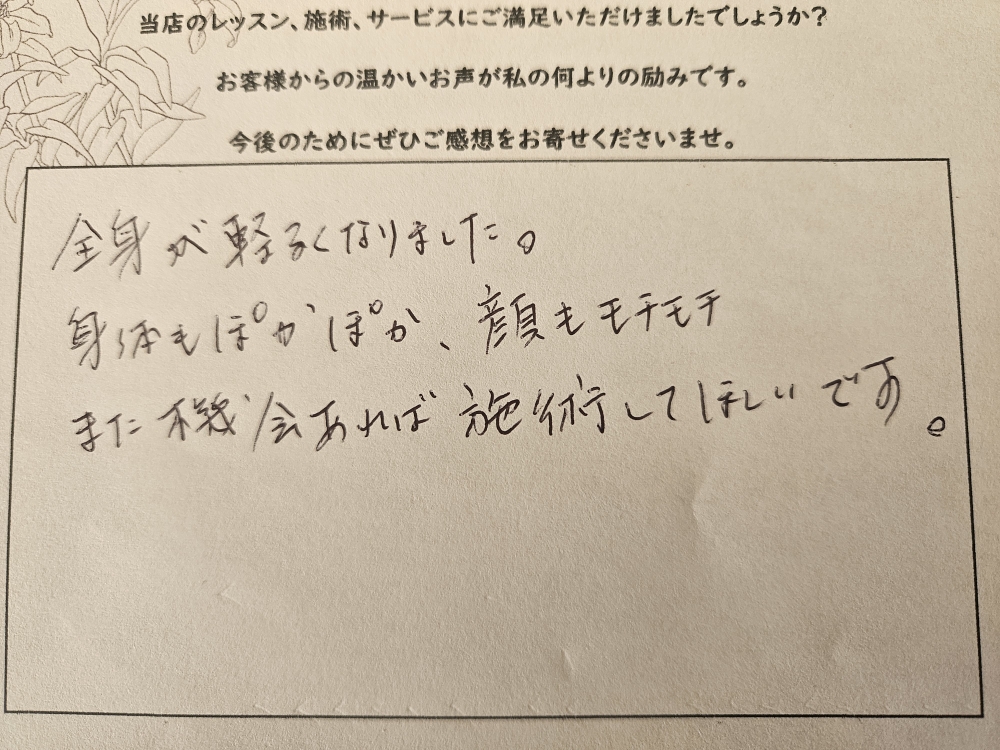 当店のレッスン、施術、サービスにご満足いただけましたでしょうか?
お客様からの温かいお声が私の何よりの励みです。
今後のためにぜひご感想をお寄せくださいませ。
全身が軽るくなりました。
身体もぽかぽか、顔もモチモチ
また機会あれば施術してほしいです。